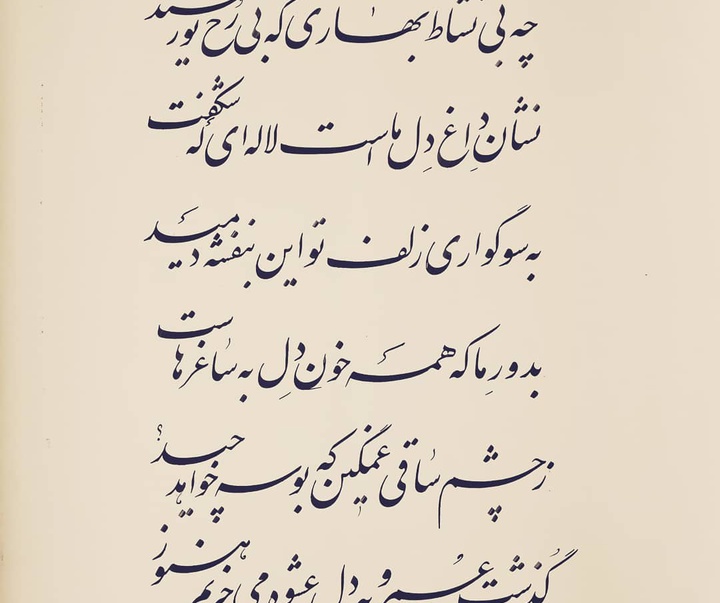 چه بی نشاط بهاری که بی رخ تو رسید
نشان داغ دل ماست لاله ای که شکفت
به سوگواری زلف تو این بنفشه دمید
بدور ما که همه خون دل به ساغرهاست
ز چشم ساقی غمگین که بوسه خواهد چید؟
گذشت عمر و به دل عشوه می خریم هنوز